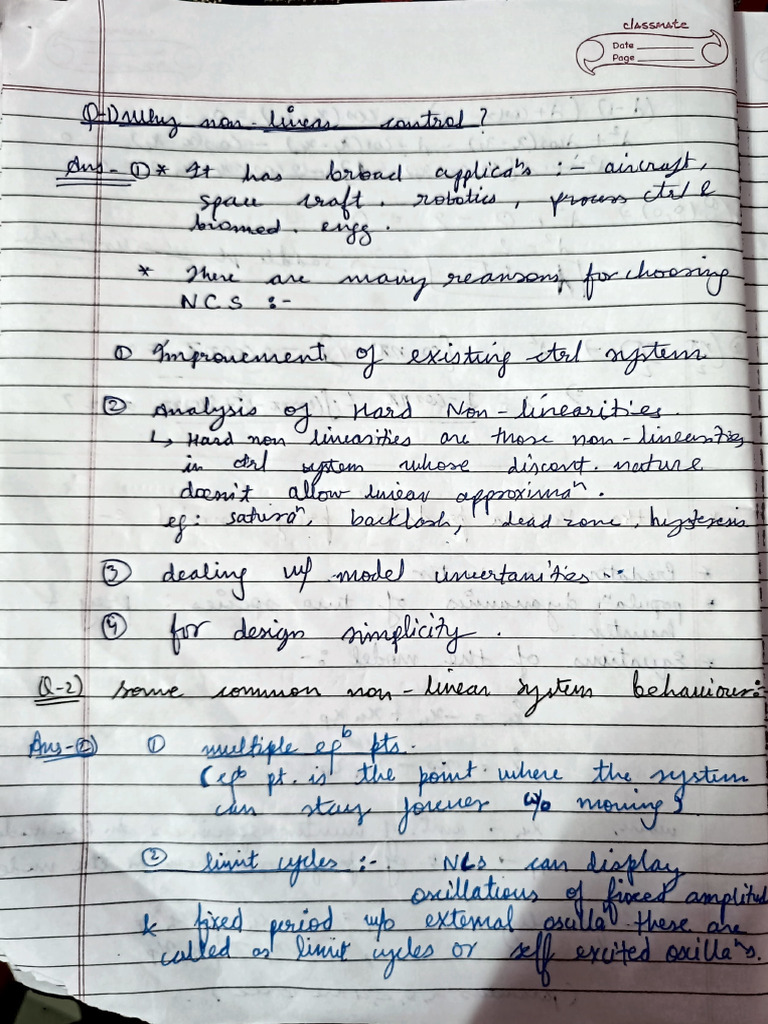 classmate
Date
Page
Q-1) Why non-linear control?
Ans-① * It has broad applicaⁿs :- aircraft,
space craft, robotics, process ctrl &
biomed. engg.
* There are many reansons for choosing
NCS :-
① Improvement of existing ctrl system
② Analysis of Hard Non-linearities.
↳ Hard non linearities are those non-linearities
in ctrl system whose discont. nature
doesn't allow linear approximaⁿ.
eg: saturaⁿ, backlash, dead zone, hysteresis
③ dealing w/ model uncertanities..
④ for design simplicity.
Q-2) some common non-linear system behaviour:-
Ans-② ① multiple eqᵇ pts.
(eqᵇ pt. is the point where the system
can stay forever w/o moving)
② limit cycles :- NLS can display
oscillations of fixed amplitud
& fixed period w/o external oscillaⁿ these are
called as limit cycles or self excited oscillaⁿs.